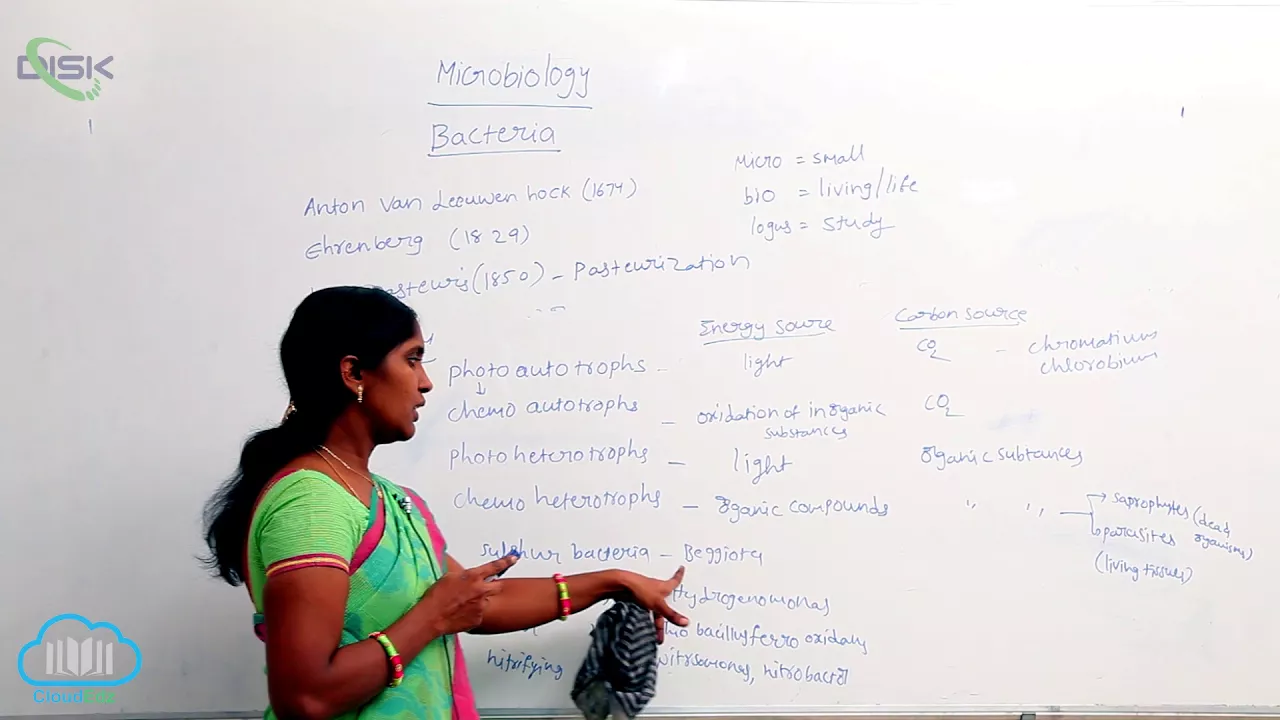 DISK
Microbiology
Bacteria
Micro = small
bio = living/life
logus = study
Anton Van Leeuwen hock (1674)
Ehrenberg (1829)
(1850) - Pasteurization
Energy sourre
Carbon source
photo autotrophs - light CO2 - chromatium
chlorobium
chemo autotrophs - oxidation of inorganic CO2
substances
photoheterotrophs - light organic subtances
chemo heterotrophs - organic compounds " " saprophytes (dead
organisms)
parasites
(living tissues)
sulphur bacteria - Beggiota
Hydrogenomonas
bacillusferro oxidans
nitrifying nitrosomonas, nitrobacter
CloudEdz